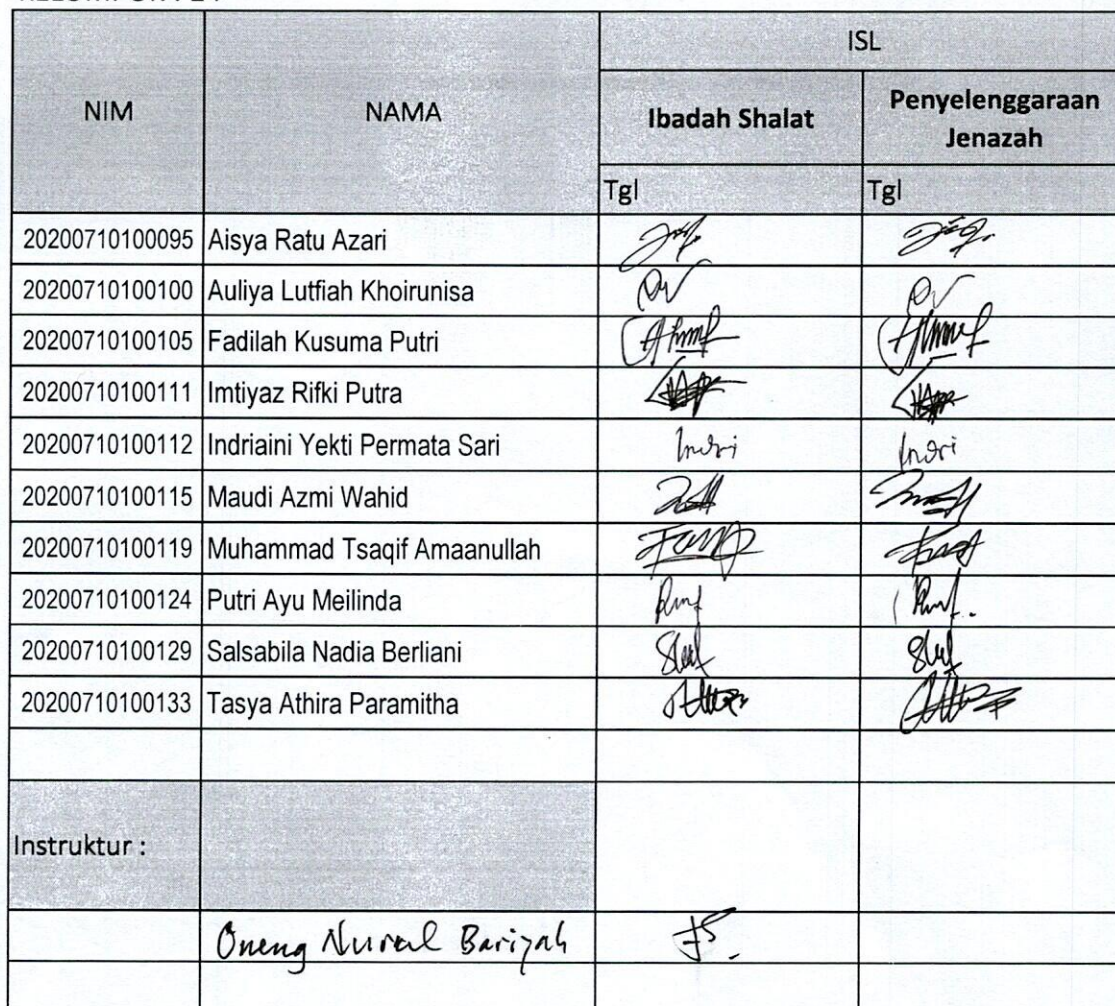 ISL
NIM NAMA Ibadah Shalat Penyelenggaraan Jenazah
Tgl Tgl
20200710100095 Aisya Ratu Azari
20200710100100 Auliya Lutfiah Khoirunisa
20200710100105 Fadilah Kusuma Putri
20200710100111 Imtiyaz Rifki Putra
20200710100112 Indriaini Yekti Permata Sari Indri Indri
20200710100115 Maudi Azmi Wahid
20200710100119 Muhammad Tsaqif Amaanullah
20200710100124 Putri Ayu Meilinda
20200710100129 Salsabila Nadia Berliani
20200710100133 Tasya Athira Paramitha
Instruktur :
Oneng Nurul Bariyah